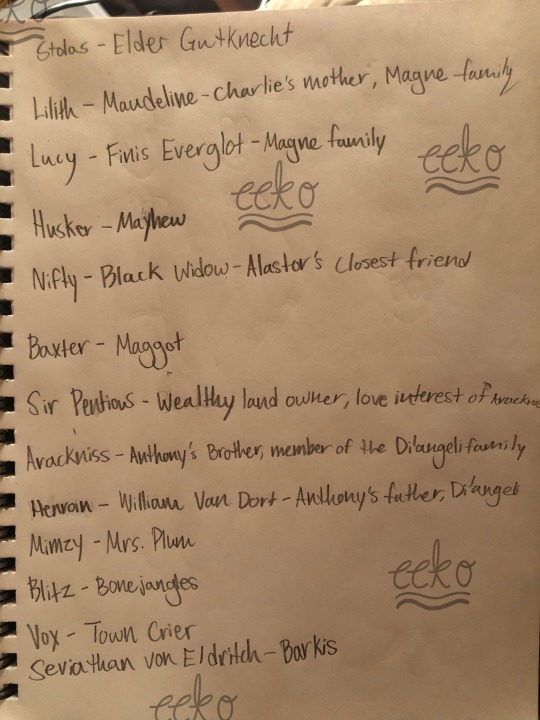 eeko
Stolas - Elder Gutknecht
Lilith - Maudeline - charlie's mother, Magne family
Lucy - Finis Everglot - Magne family
eeko
eeko
Husker - Mayhew
Nifty - Black Widow - Alastor's closest friend
Baxter - Maggot
Sir Pentious - Wealthy land owner, love interest of
Arackniss - Anthony's Brother, member of the Di'angeli family
Henroin - William Van Dort - Anthony's father, Di'angeli
Mimzy - Mrs. Plum
eeko
Blitz - Bonejangles
Vox - Town Crier
Seviathan von Eldritch - Barkis
eeko